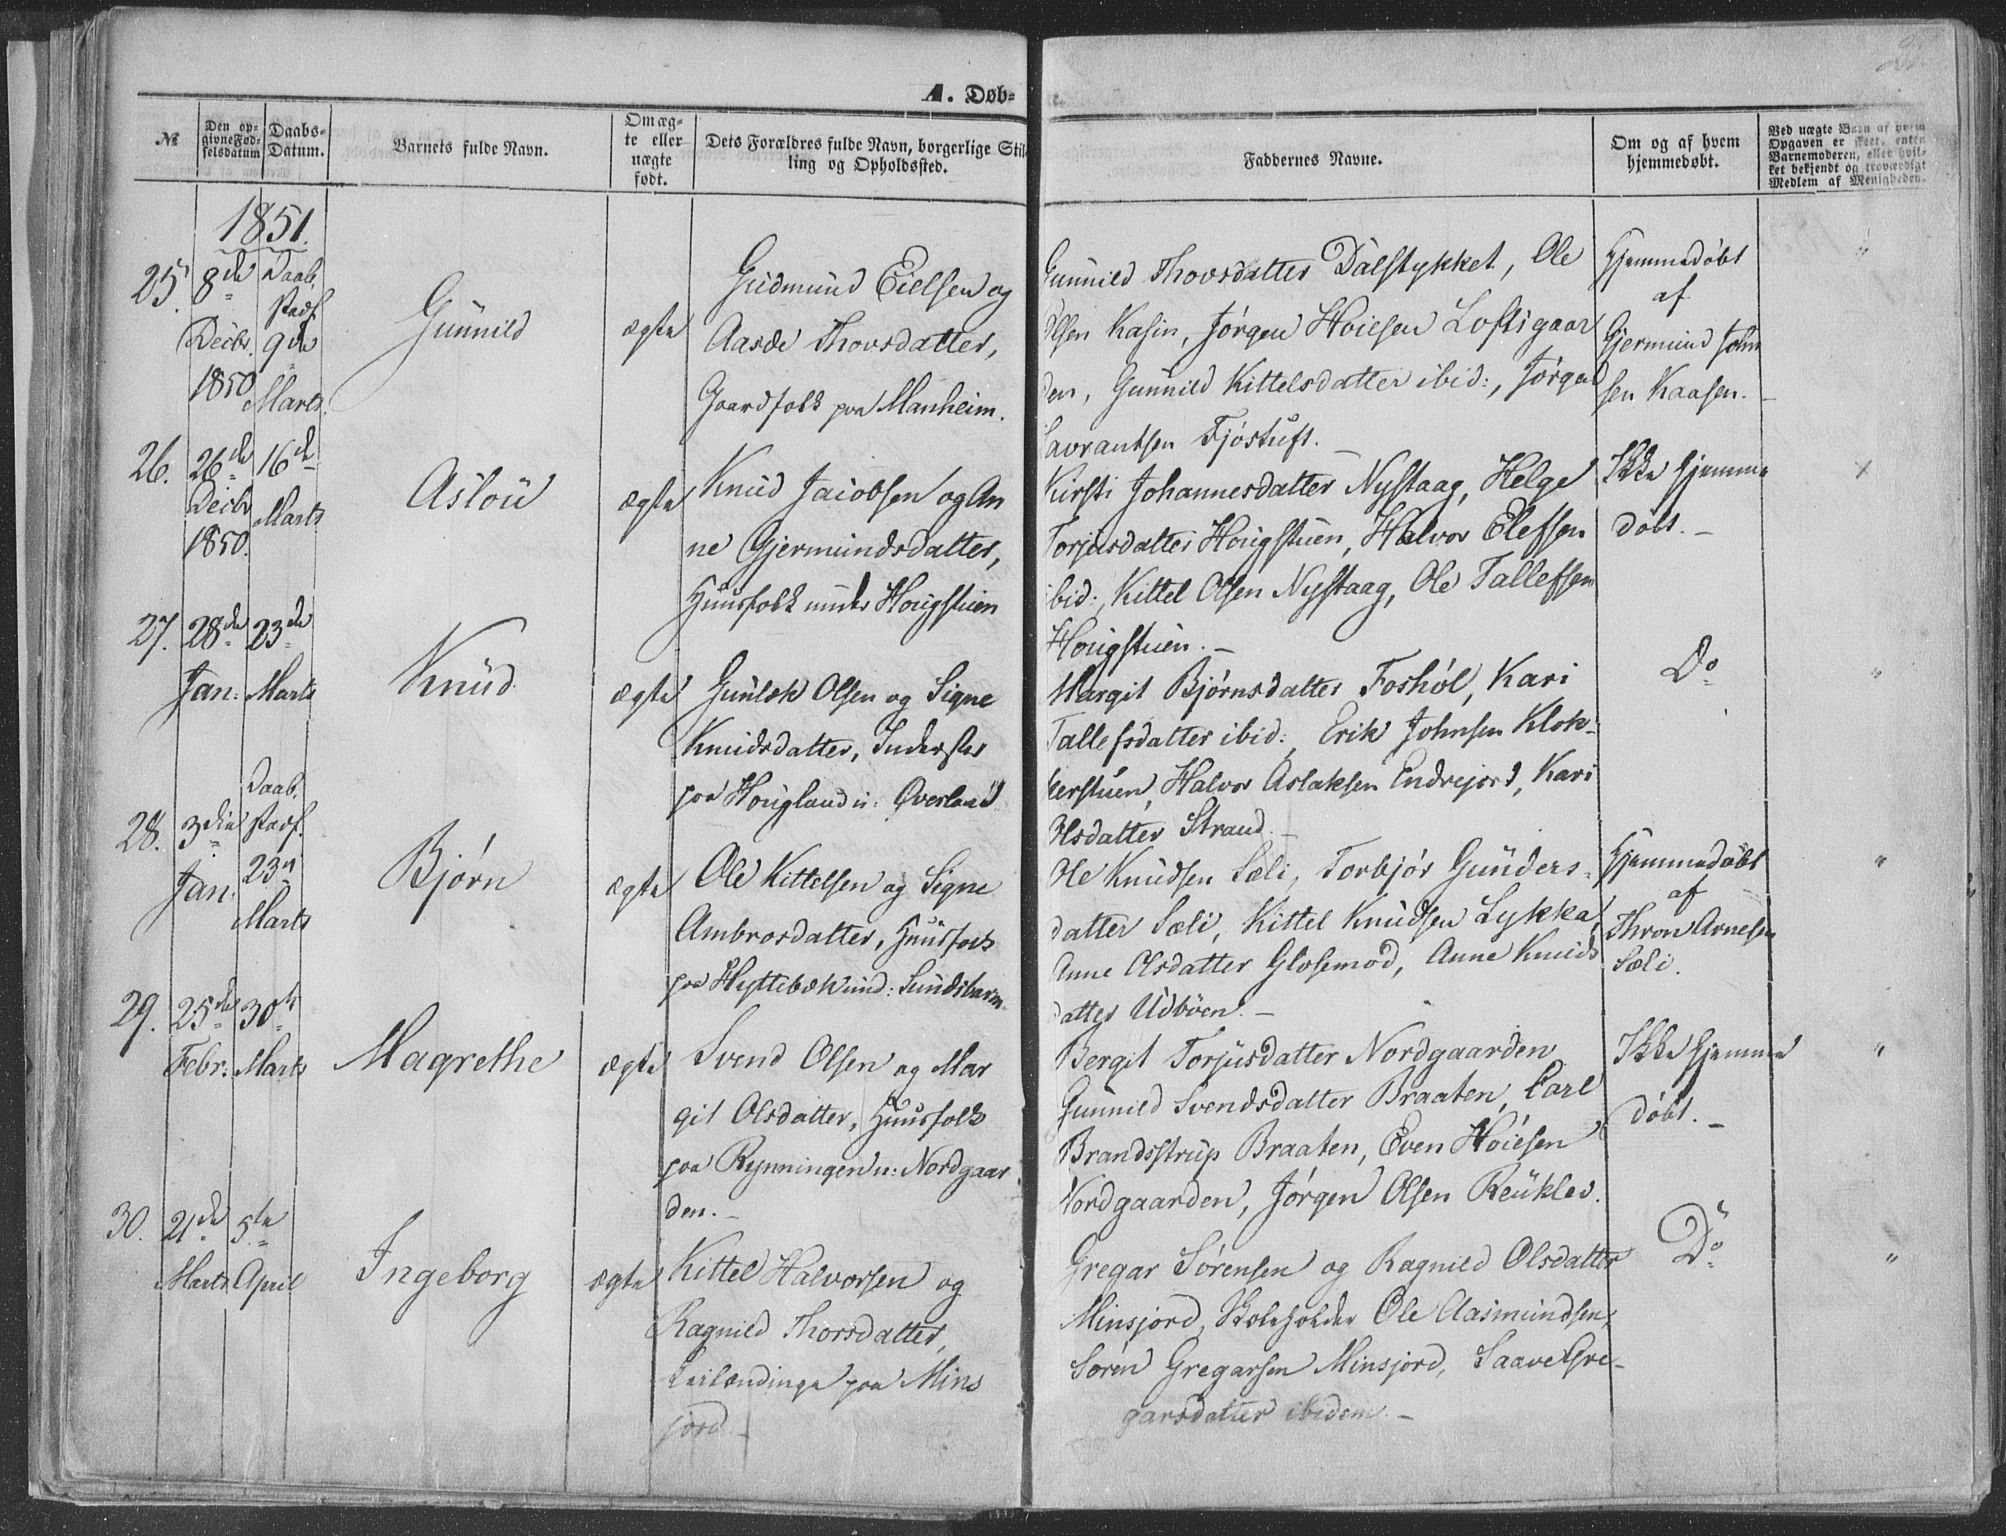 A. Døb-
№
Den op-
givne Fød-
felsdatum
Daabs-
Datum.
Barnets fulde Navn.
Om æg-
te eller
uægte
født.
Dets Forældres fulde Navn, borgerlige Stil-
ling og Opholdssted.
Faddernes Navne.
Om og af hvem
hjemmedøbt.
Ved uægte Barn af hvem
Opgaven er skeet, enten
Barnemoderen, eller hvil-
ket bekjendt og troværdigt
Medlem af Menigheden.
1851.
25. 8de Decbr. 1850
Daab. Stadf. 9de Marts.
Gunnild
ægte
Gudmund Eielsen og
Aasde Thovsdatter,
Gaardfolk paa Manheim.
Gunnild Thovsdatter Dalstykket, Ole
Olsen Kasin, Jørgen Hoiesen Loftsgaar
den, Gunnild Kittelsdatter ibid:, Jørgen
Savrantsen Fjøstuft. –
Hjemmedøbt
af
Gjermund John
sen Kaasen. –
"
26. 26de Decbr 1850.
16de Marts
Aslou
ægte
Knud Jacobsen og An
ne Gjermundsdatter,
Huusfolk under Hougstuen
Kirsti Johannesdatter Nystaag, Helge
Torjusdatter Hougstuen, Halvor Olefsen
ibid:, Kittel Olsen Nystaag, Ole Tallefsen
Hougstuen. –
Ikke hjemme
døbt. –
27. 28de Jan:
23de Marts
Knud
ægte
Gunlek Olsen og Signe
Knudsdatter, Inderster
paa Hougland u: Øverland
Margit Bjørnsdatter Foshól, Kari
Tallefsdatter ibid:, Erik Johnsen Klok-
kerstuen, Halvor Aslaksen Endrejord, Kari
Olsdatter Strand. –
Do
"
28. 3die Jan.
Daab. Stadf. 23de Marts
Bjørn
ægte
Ole Kittelsen og Signe
Ambrosdatter, Huusfolk
paa Hyttebæk und: Sundsbarm
Ole Knudsen Sæli, Torbjør Gunders-
datter Sæli, Kittel Knudsen Lykka,
Anne Olsdatter Glosemod, Anne Knuds
datter Udbøen. –
Hjemmedøbt
af
Thron Arnesen
Sæli.
"
29. 25de Febr:
30te Marts
Magrethe
ægte
Svend Olsen og Mar
git Olsdatter, Huusfolk
paa Rynningen u: Nordgaar
den. –
Bergit Torjusdatter Nordgaarden
Gunnild Svendsdatter Braaten, Carl
Brandsstrup Braaten, Even Høiesen
Nordgaarden, Jørgen Olsen Reuklev.
Ikke hjemme
døbt. –
"
30. 21de Marts
5te April
Ingeborg
ægte
Kittel Halvorsen og
Ragnild Thorsdatter,
Leilændinge paa Mins
jord –
Gregar Sørensen og Ragnild Olsdatter
Minsjord, Skoleholder Ole Aasmundsen,
Søren Gregarsen Minsjord, Saave Gre-
garsdatter ibidem. –
Do
"